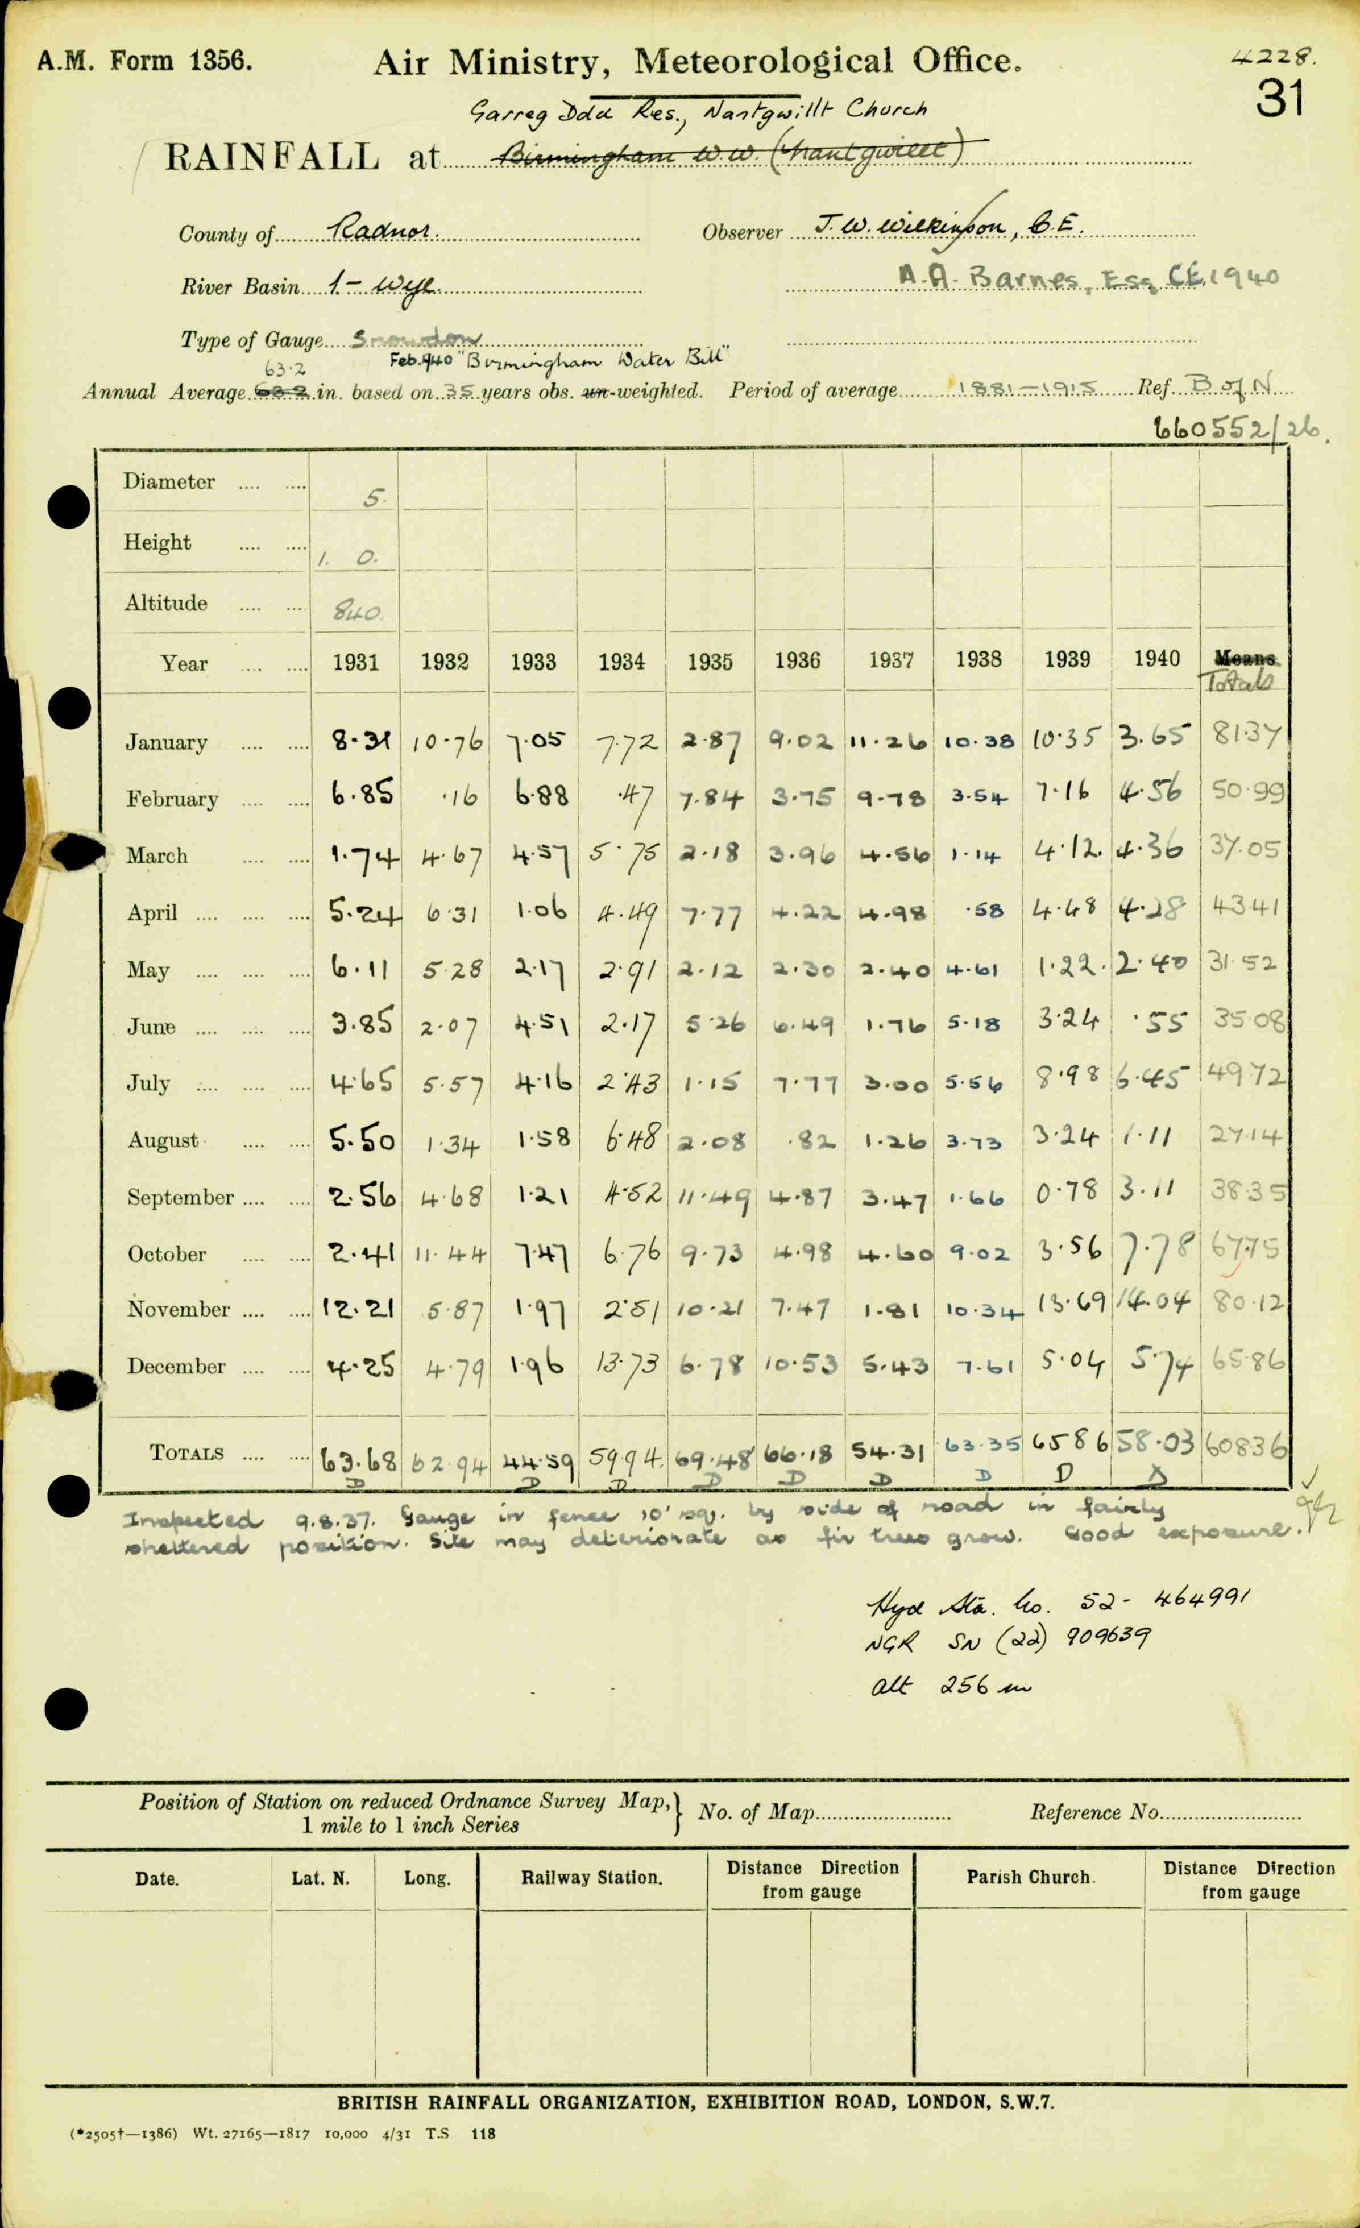 A.M. Form 1356. Air Ministry, Meteorological Office. 4228.
31
Garreg Ddu Res., Nantgwillt Church
RAINFALL at Birmingham W.W. (Nantgwillt)
County of Radnor. Observer J.W. Wilkinson, C.E.
River Basin 1 - Wye. A.A. Barnes, Esq, C.E. 1940
Type of Gauge Snowdon
Feb. 940 "Birmingham Water Bill"
63.2
Annual Average 63.2 in. based on 35 years obs. un-weighted. Period of average 1881-1915 Ref. B of N
660552/26.
Diameter 5.
Height 1. 0.
Altitude 840.
Year 1931 1932 1933 1934 1935 1936 1937 1938 1939 1940 Means
Totals
January 8.31 10.76 7.05 7.72 2.87 9.02 11.26 10.38 10.35 3.65 81.37
February 6.85 .16 6.88 .47 7.84 3.75 9.78 3.54 7.16 4.56 50.99
March 1.74 4.67 4.57 5.75 2.18 3.96 4.56 1.14 4.12. 4.36 37.05
April 5.24 6.31 1.06 4.49 7.77 4.22 4.98 .58 4.48 4.28 43.41
May 6.11 5.28 2.17 2.91 2.12 2.30 2.40 4.61 1.22. 2.40 31.52
June 3.85 2.07 4.51 2.17 5.26 6.49 1.76 5.18 3.24 .55 35.08
July 4.65 5.57 4.16 2.43 1.15 7.77 3.00 5.56 8.98 6.45 49.72
August 5.50 1.34 1.58 6.48 2.08 .82 1.26 3.73 3.24 1.11 27.14
September 2.56 4.68 1.21 4.52 11.49 4.87 3.47 1.66 0.78 3.11 38.35
October 2.41 11.44 7.47 6.76 9.73 4.98 4.60 9.02 3.56 7.78 67.75
November 12.21 5.87 1.97 2.51 10.21 7.47 1.81 10.34 13.69 14.04 80.12
December 4.25 4.79 1.96 13.73 6.78 10.53 5.43 7.61 5.04 5.74 65.86
TOTALS 63.68 62.94 44.59 59.94. 69.48 66.18 54.31 63.35 65.86 58.03 608.36
D D D D D D D D D
Inspected 9.8.37. Gauge in fence 10' sq. by side of road in fairly
sheltered position. Site may deteriorate as fir trees grow. Good exposure.
Hyd Sta. No. 52 - 464991
NGR SN (22) 909639
alt 256 m
Position of Station on reduced Ordnance Survey Map,} No. of Map Reference No.
1 mile to 1 inch Series
Date. Lat. N. Long. Railway Station. Distance Direction from gauge Parish Church. Distance Direction from gauge
BRITISH RAINFALL ORGANIZATION, EXHIBITION ROAD, LONDON, S.W.7.
(*2505†—1386) Wt. 27165—1817 10,000 4/31 T.S 118